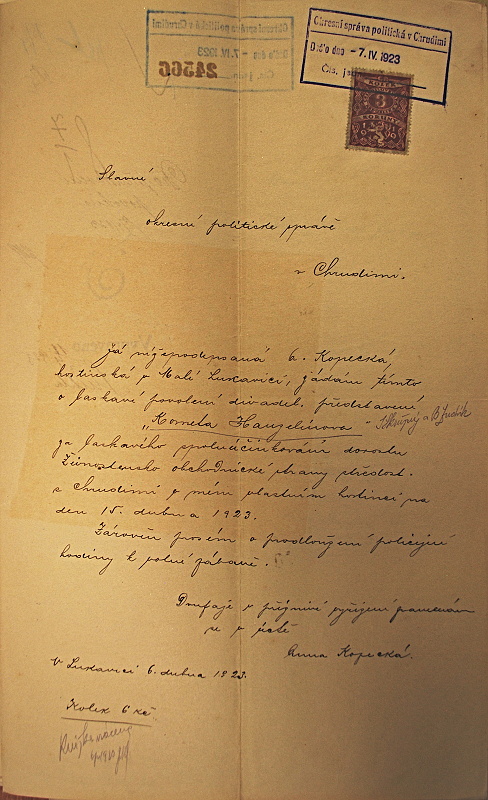 Okresní správa politická v Chrudimi
Došlo dne - 7. IV. 1923
Čís. jedn.
24566
KOLEK
3
KORUNY
Slavné
okresní politické správě
v Chrudimi.
Já nížepodepsaná A. Kopecká,
hostinská v Malé Lukavici, žádám tímto
o laskavé povolení divadel. představení
„Kometa Hanzelínova"
za laskavého spoluúčinkování dorostu
Živnostensko obchodnické strany středost.
z Chrudimi v mém vlastním hostinci na
den 15. dubna 1923.
Zároveň prosím o prodloužení policejní
hodiny k volné zábavě.
Doufaje v příznivé vyřízení znamenám
se v úctě
Anna Kopecká.
V Lukavici 6. dubna 1923.
Kolek 6 kč.